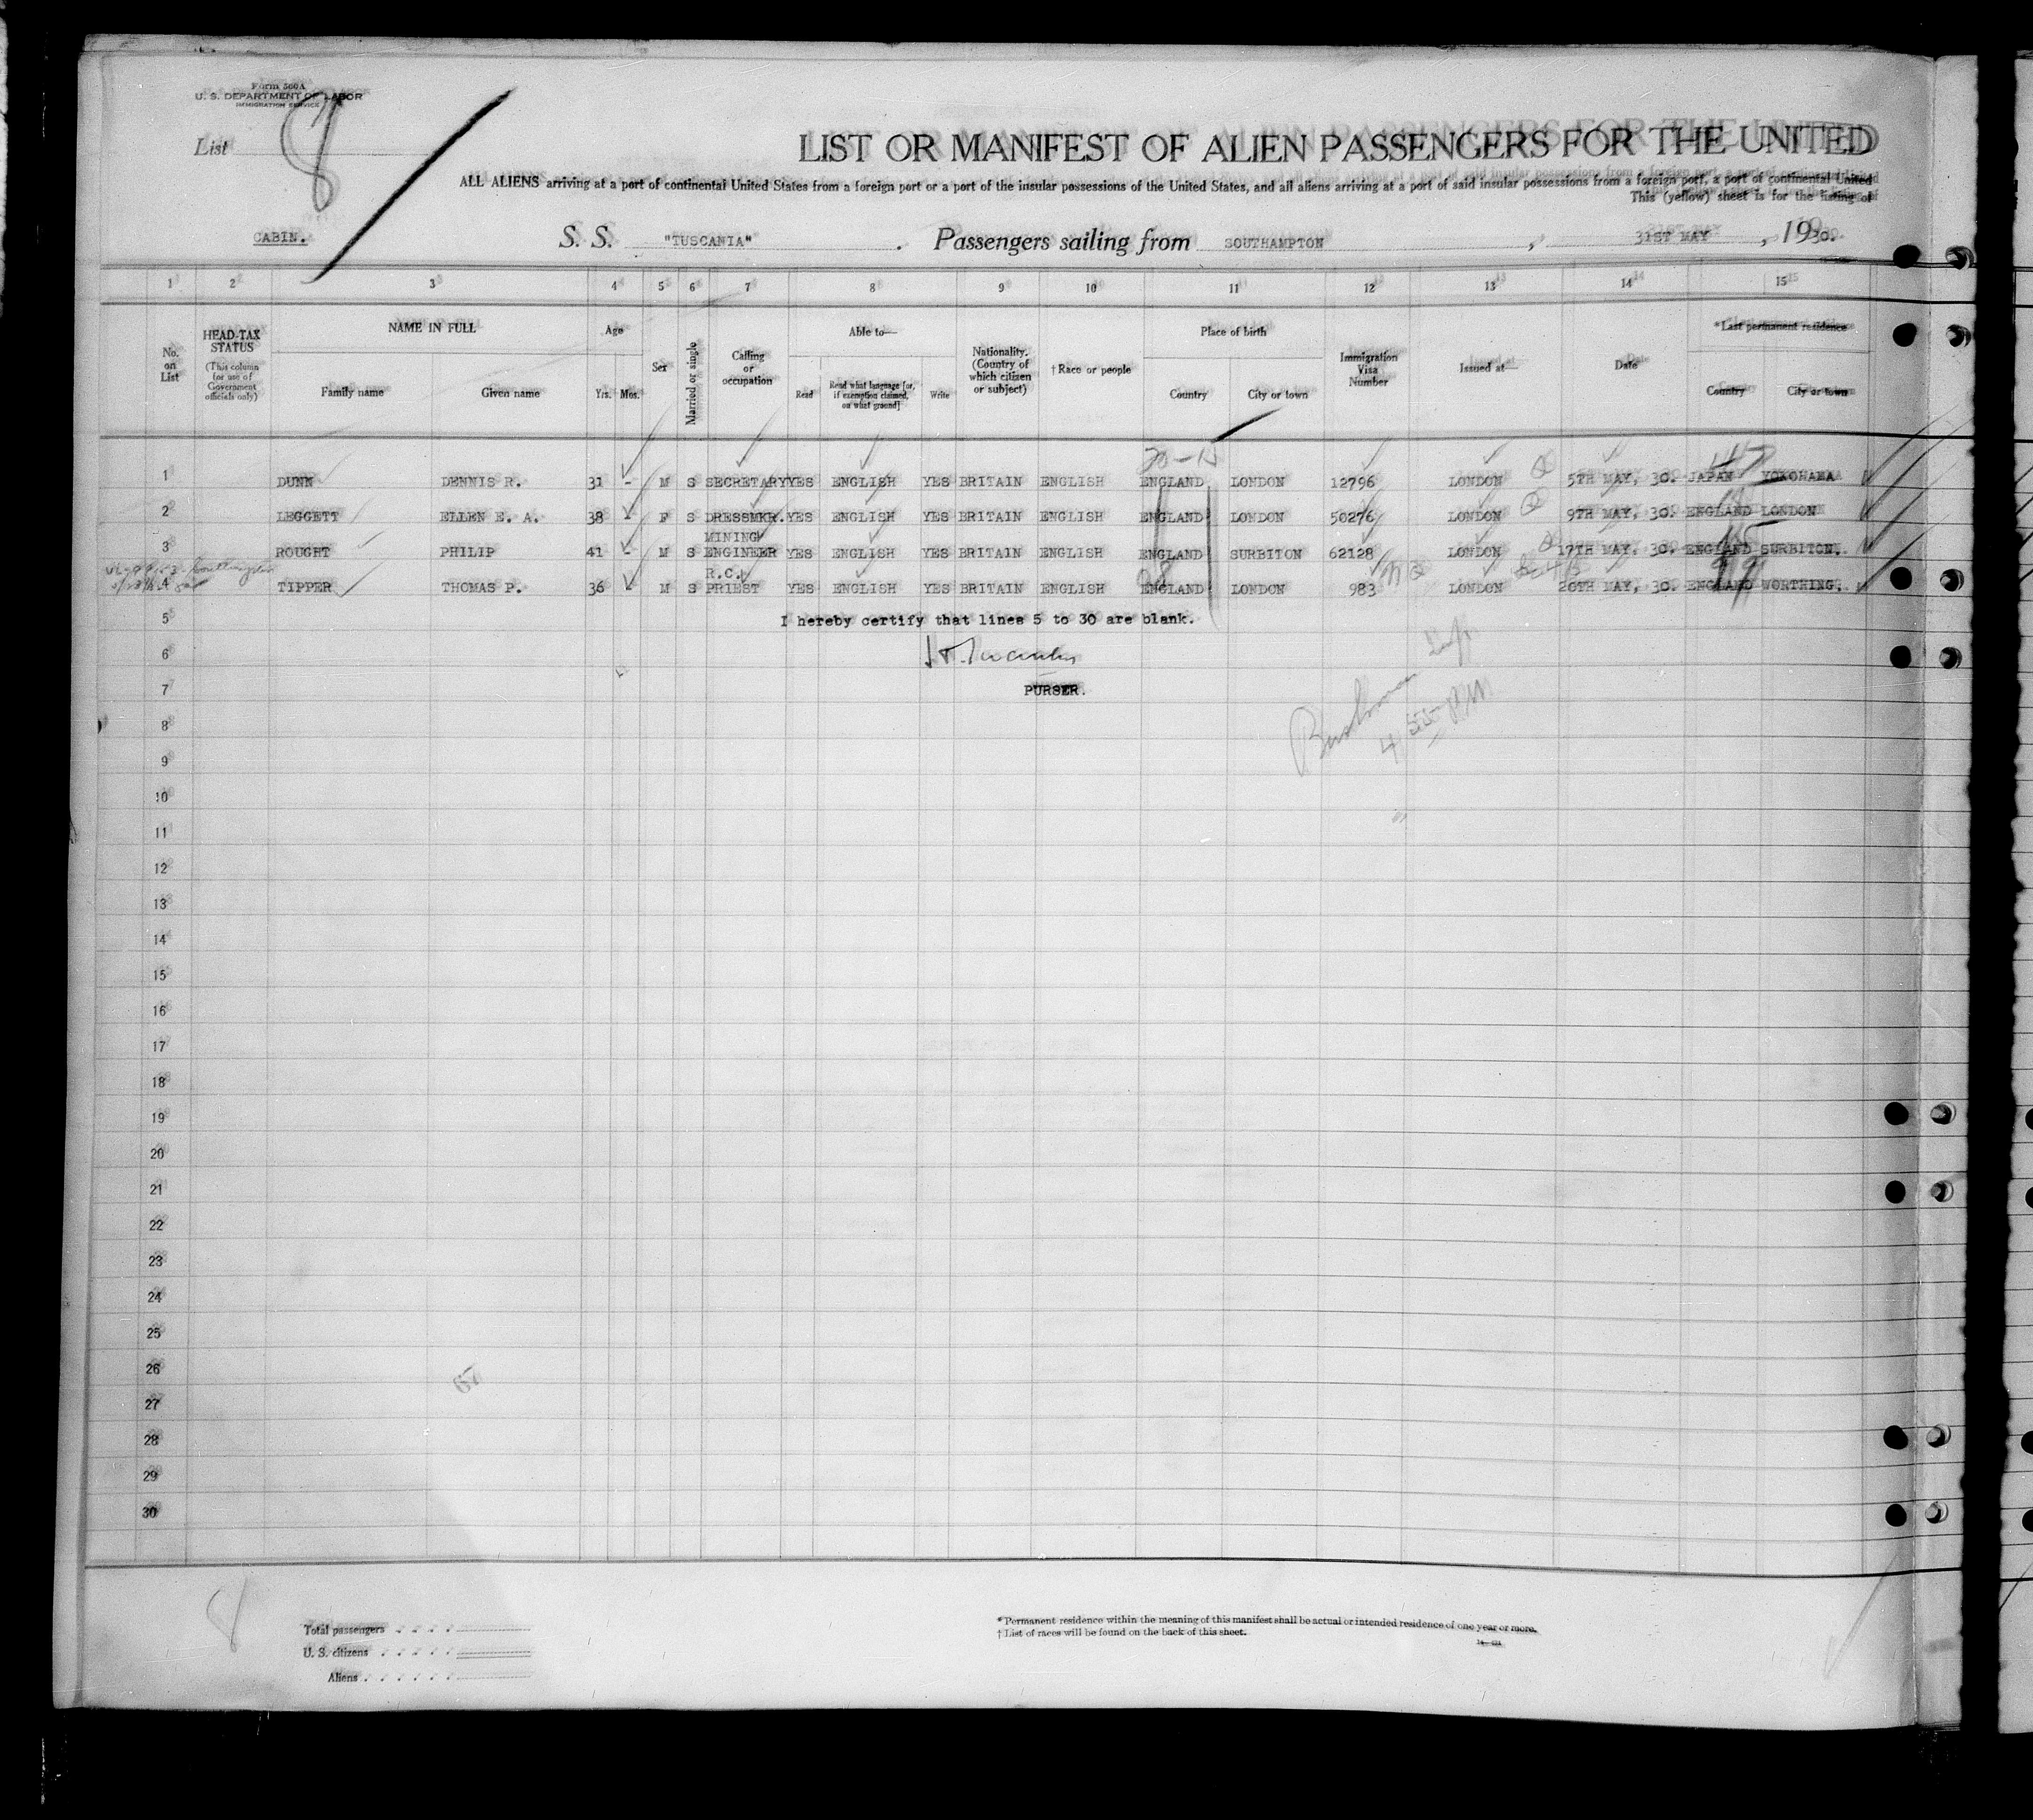 Form 500A
U. S. DEPARTMENT OF LABOR
IMMIGRATION SERVICE
List 8
LIST OR MANIFEST OF ALIEN PASSENGERS FOR THE UNITED
ALL ALIENS arriving at a port of continental United States from a foreign port or a port of the insular possessions of the United States, and all aliens arriving at a port of said insular possessions from a foreign port, a port of continental United
This (yellow) sheet is for the listing of
CABIN. S. S. "TUSCANIA" . Passengers sailing from SOUTHAMPTON , 31ST MAY , 1930.
1 2 3 4 5 6 7 8 9 10 11 12 13 14 15
No. on List
HEAD-TAX STATUS (This column for use of Government officials only)
NAME IN FULL Family name Given name
Age Yrs. Mos.
Sex
Married or single
Calling or occupation
Able to— Read Read what language [or, if exemption claimed, on what ground] Write
Nationality. (Country of which citizen or subject)
†Race or people
Place of birth Country City or town
Immigration Visa Number
Issued at—
Date
*Last permanent residence Country City or town
1 DUNN DENNIS R. 31 - M S SECRETARY YES ENGLISH YES BRITAIN ENGLISH ENGLAND LONDON 12796 LONDON 5TH MAY, 30. JAPAN YOKOHAMA
2 LEGGETT ELLEN E. A. 38 - F S DRESSMKR. YES ENGLISH YES BRITAIN ENGLISH ENGLAND LONDON 50276 LONDON 9TH MAY, 30. ENGLAND LONDON
3 ROUGHT PHILIP 41 - M S MINING ENGINEER YES ENGLISH YES BRITAIN ENGLISH ENGLAND SURBITON 62128 LONDON 17TH MAY, 30. ENGLAND SURBITON.
4 TIPPER THOMAS P. 36 - M S R.C. PRIEST YES ENGLISH YES BRITAIN ENGLISH ENGLAND LONDON 983 LONDON 20TH MAY, 30. ENGLAND WORTHING.
5 I hereby certify that lines 5 to 30 are blank.
6
7 PURSER.
4 55 PM
8
9
10
11
12
13
14
15
16
17
18
19
20
21
22
23
24
25
26
27
28
29
30
8
Total passengers
U. S. citizens
Aliens
*Permanent residence within the meaning of this manifest shall be actual or intended residence of one year or more.
†List of races will be found on the back of this sheet.